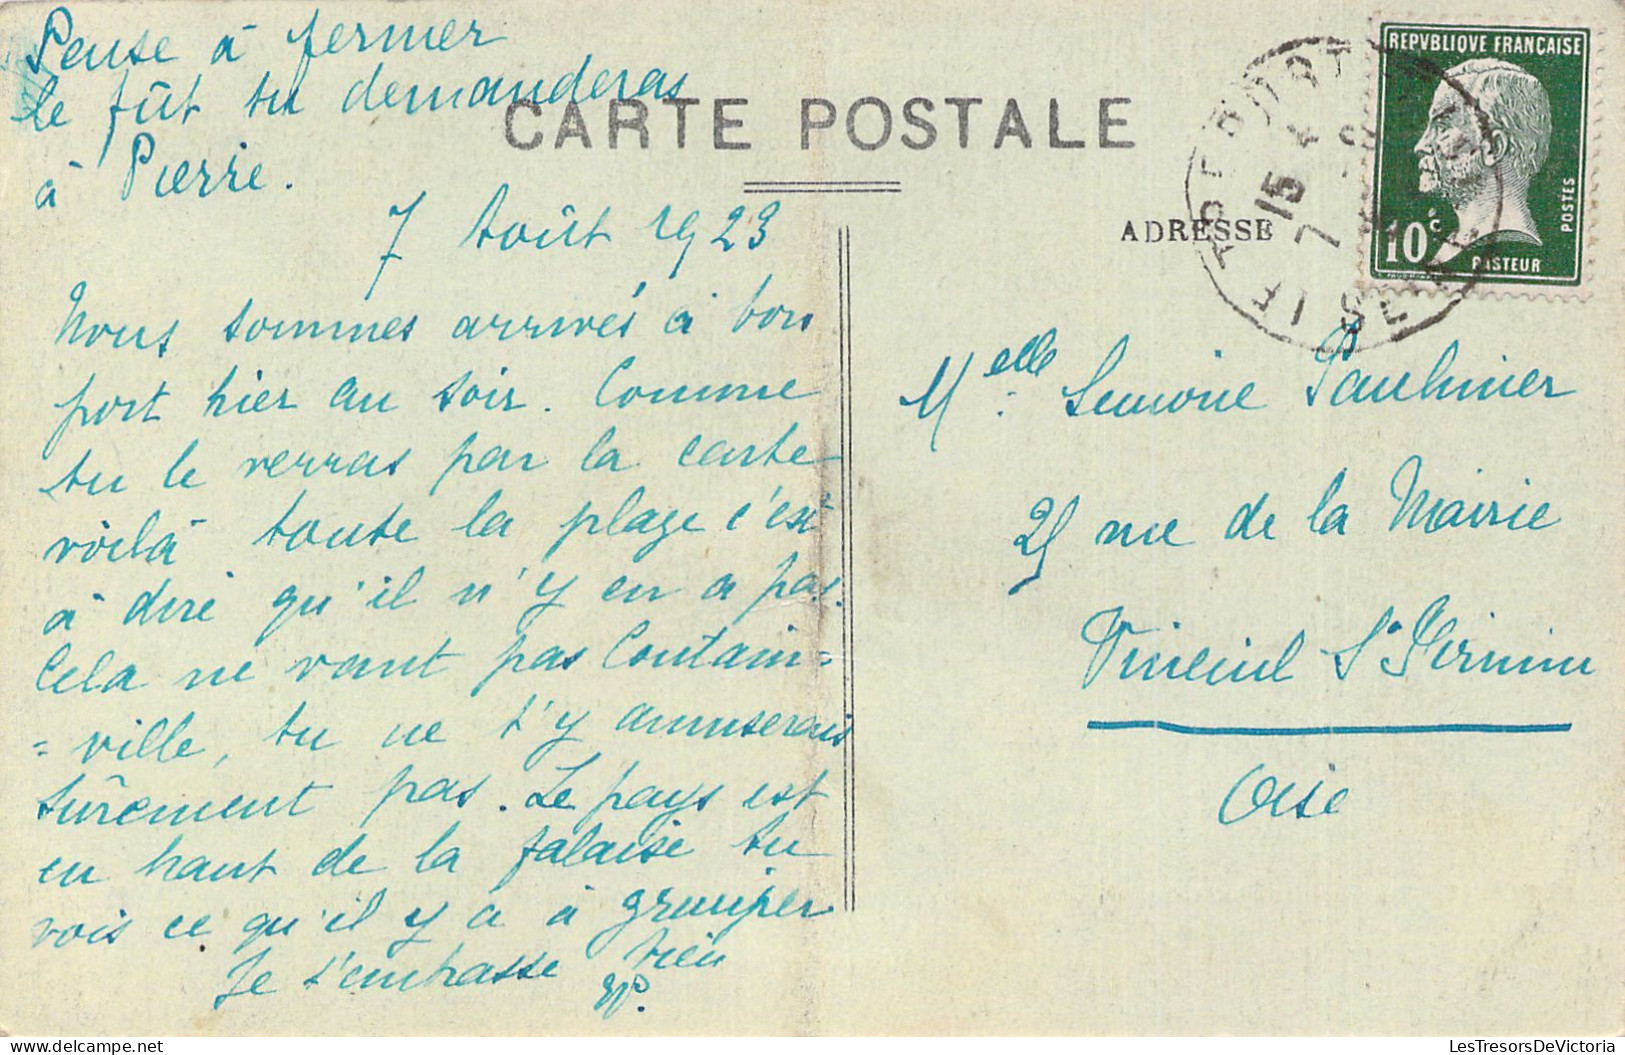 Pense à fermer
le fût tu demanderas
à Pierre.
CARTE POSTALE
7 Août 1923
Nous sommes arrivés à bon
port hier au soir. Comme
tu le verras par la carte
voilà toute la plage c'est
à dire qu'il n'y en a pas.
Cela ne vaut pas Coutain=
=ville, tu ne t'y amuserais
sûrement pas. Le pays est
en haut de la falaise tu
vois ce qu'il y a à grimper
Je t'embrasse bien
ADRESSE
REPVBLIQVE FRANÇAISE
POSTES
10c
PASTEUR
15 4
7
Melle Simone Paulmier
25 rue de la Mairie
Vineuil St Firmin
Oise
LesTresorsDeVictoria.com